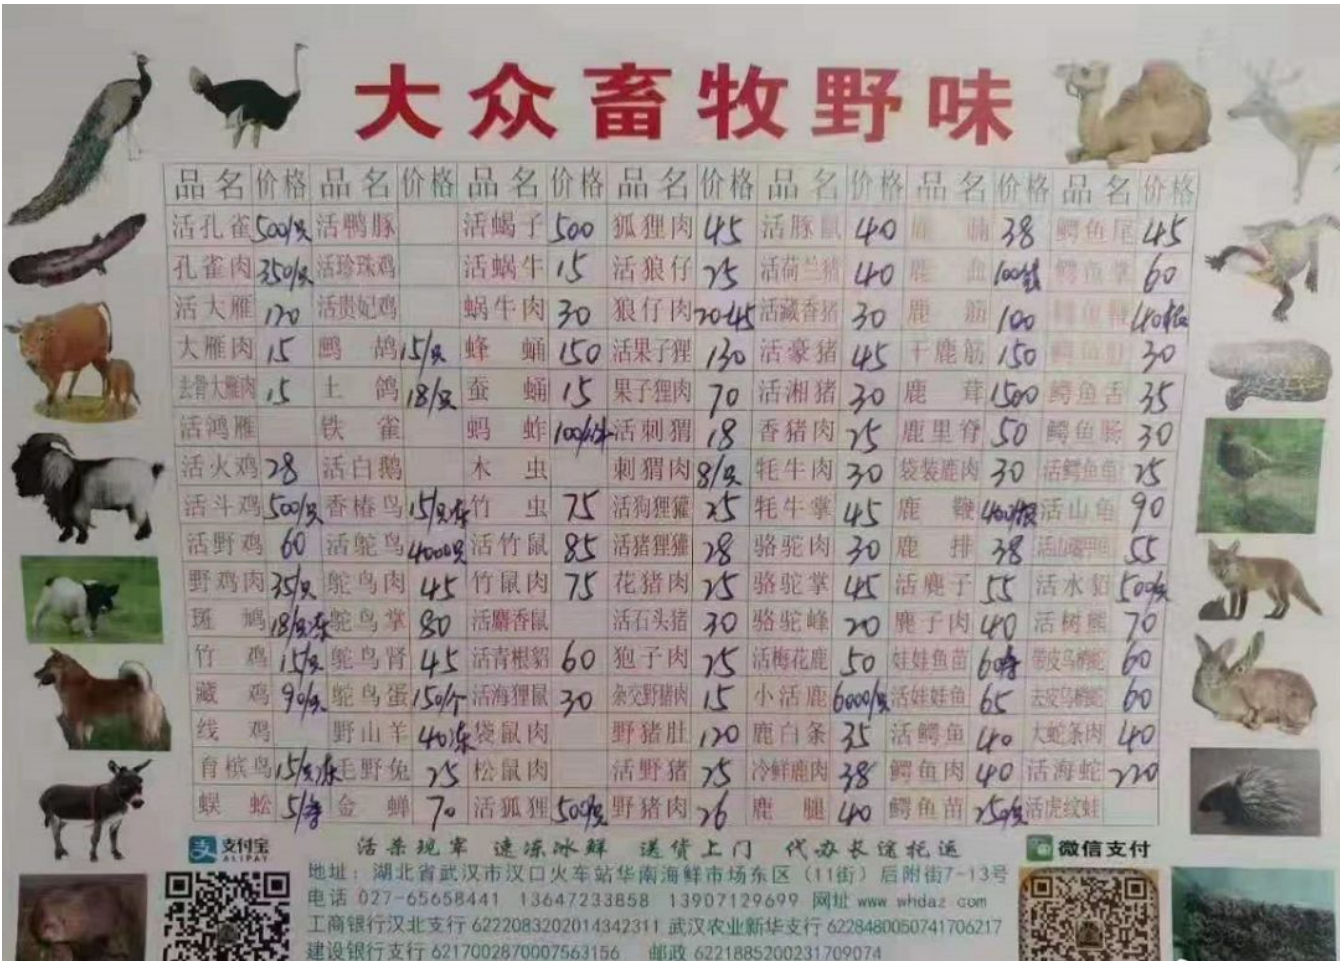 大众畜牧野味
品名 价格 品名 价格 品名 价格 品名 价格 品名 价格 品名 价格 品名 价格
活孔雀 500/只 活鸭豚 活蝎子 500 狐狸肉 45 活豚鼠 40 鹿 38 鳄鱼尾 45
孔雀肉 350/只 活珍珠鸡 活蜗牛 15 活狼仔 25 活荷兰猪 40 鹿血 鳄鱼掌 60
活大雁 120 活贵妃鸡 蜗牛肉 30 狼仔肉 20-45 活藏香猪 30 鹿筋 100 鳄鱼
大雁肉 15 鹧鸪 15/只 蜂蛹 150 活果子狸 130 活豪猪 45 干鹿筋 150 鳄鱼肚 30
去骨大雁肉 15 土鸽 18/只 蚕蛹 15 果子狸肉 70 活湘猪 30 鹿茸 1500 鳄鱼舌 35
活鸿雁 铁雀 蚂蚱 活刺猬 18 香猪肉 25 鹿里脊 50 鳄鱼肠 30
活火鸡 28 活白鹅 木虫 刺猬肉 8/只 牦牛肉 30 袋装鹿肉 30 活鳄鱼龟 25
活斗鸡 500/只 香椿鸟 15/只冻 竹虫 75 活狗狸獾 25 牦牛掌 45 鹿鞭 活山龟 90
活野鸡 60 活鸵鸟 4000只 活竹鼠 85 活猪狸獾 28 骆驼肉 30 鹿排 38 55
野鸡肉 35/只 鸵鸟肉 45 竹鼠肉 75 花猪肉 25 骆驼掌 45 活麂子 55 活水貂 500/只
斑鸠 18/只冻 鸵鸟掌 80 活麝香鼠 活石头猪 30 骆驼峰 20 麂子肉 40 活树熊 70
竹鸡 15/只 鸵鸟肾 45 活青根貂 60 狍子肉 25 活梅花鹿 50 娃娃鱼苗 带皮乌梢蛇 60
藏鸡 90/只 鸵鸟蛋 150/个 活海狸鼠 30 杂交野猪肉 15 小活鹿 6000/只 活娃娃鱼 65 去皮乌梢蛇 60
线鸡 野山羊 40冻 袋鼠肉 野猪肚 120 鹿白条 35 活鳄鱼 40 大蛇条肉 40
育槟鸟 15/只冻 毛野兔 25 松鼠肉 活野猪 25 冷鲜鹿肉 38 鳄鱼肉 40 活海蛇 220
蜈蚣 金蝉 70 活狐狸 500/只 野猪肉 26 鹿腿 40 鳄鱼苗 250/只 活虎纹蛙
支付宝 活杀现宰 速冻冰鲜 送货上门 代办长途托运 微信支付
ALIPAY
地址：湖北省武汉市汉口火车站华南海鲜市场东区（11街）后附街7-13号
电话 027-65658441 13647233858 13907129699 网址 www whdaz com
工商银行汉北支行 6222083202014342311 武汉农业新华支行 6228480050741706217
建设银行支行 6217002870007563156 邮政 6221885200231709074